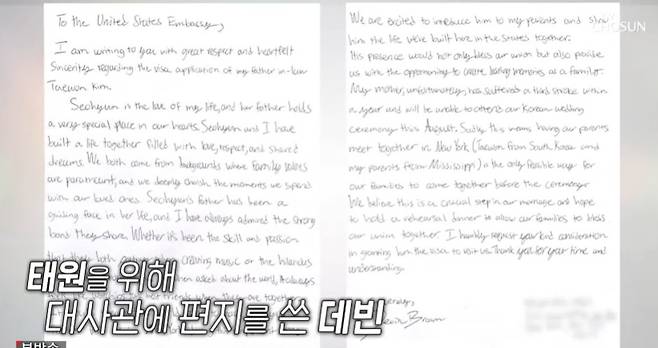 To the United States Embassy,
I am writing to you with great respect and heartfelt
Sincerity regarding the visa application of my father in-law
Taewon Kim.
Seohyun is the love of my life, and her father holds
a very special place in our hearts. Seohyun and I have
built a life together filled with love, respect, and shared
dreams. We both come from backgrounds where family values
are paramount, and we deeply cherish the moments we spend
with our loved ones. Seohyun's father has been a
guiding force in her life, and I have always admired the strong
bond they share. Whether it's been the skill and passion
that they both when creating music or the
when asked about the world,
her friends when they are together
We are excited to introduce him to my parents and show
him the life we've built here in the States together.
His presence would not only bless our union but also provide
us with the opportunity to create lasting memories as a family.
My mother, unfortunately, has suffered a third stroke within
a year and will be unable to attend our Korean wedding
ceremony this August. Sadly this means having our parents
meet together in New York (Taewon from South Korea and
my parents from Mississippi) is the only feasible way for
our families to come together before the ceremony.
We believe this is a crucial step in our marriage and hope
to hold a rehearsal dinner to allow our families to bless
our union together. I humbly request your kind consideration
in granting him the visa to visit us. Thank you for your time and
understanding.
Brown
CHOSUN
태원을 위해
대사관에 편지를 쓴 데빈
본방송